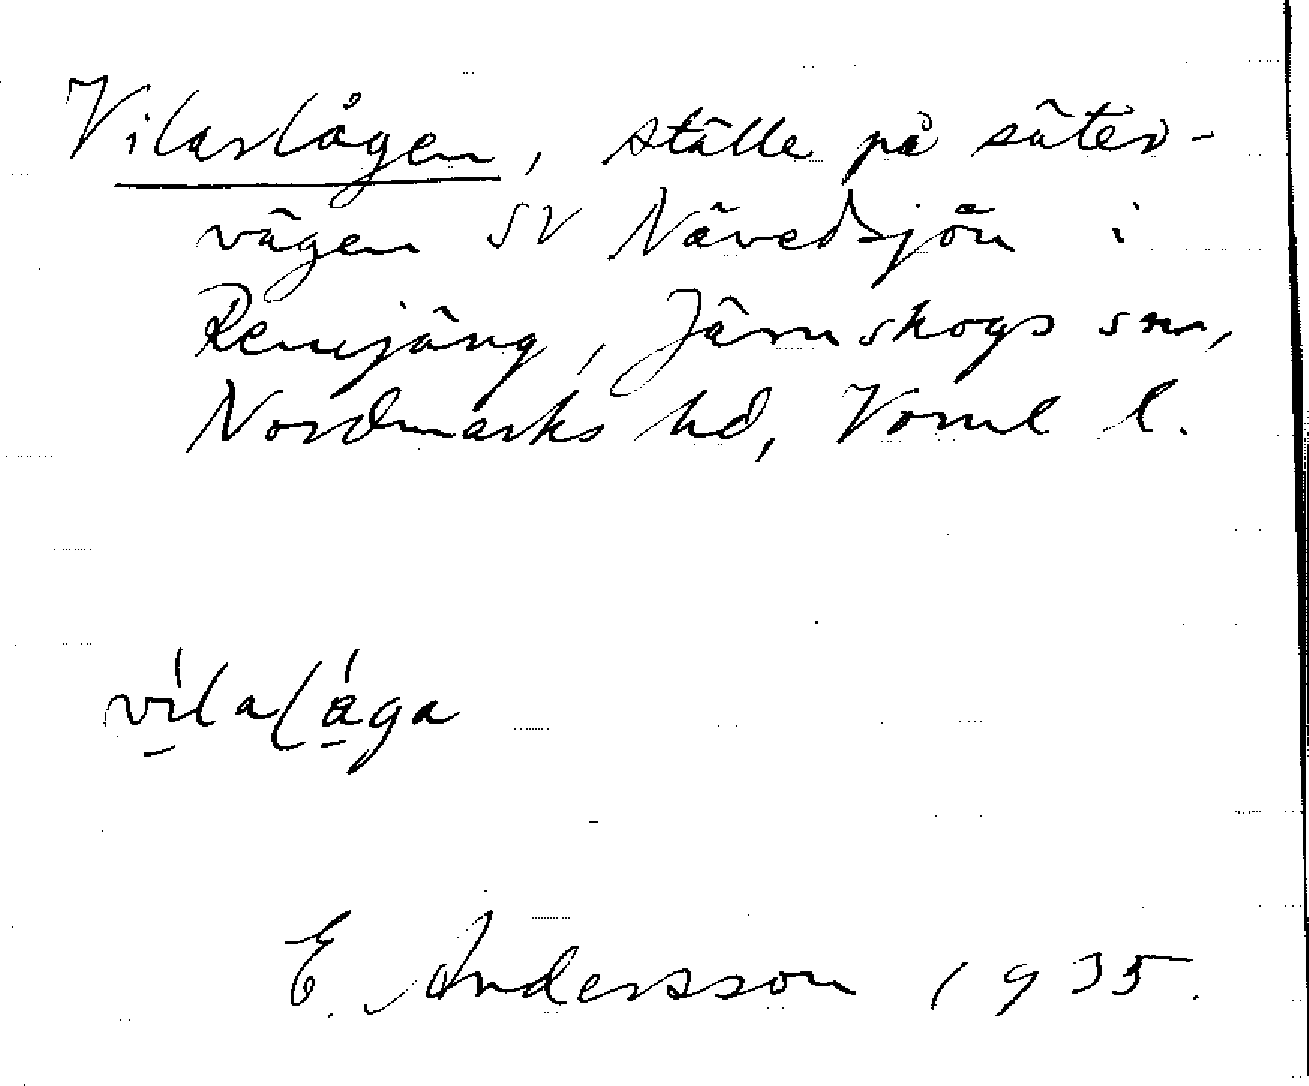 Vilarlågen, ställe på säter-
vägen SV Nävedsjön i
Remjäng, Järnskogs sn,
Nordmarks hd, Värml l.
vílalåga
E. Andersson 1935.